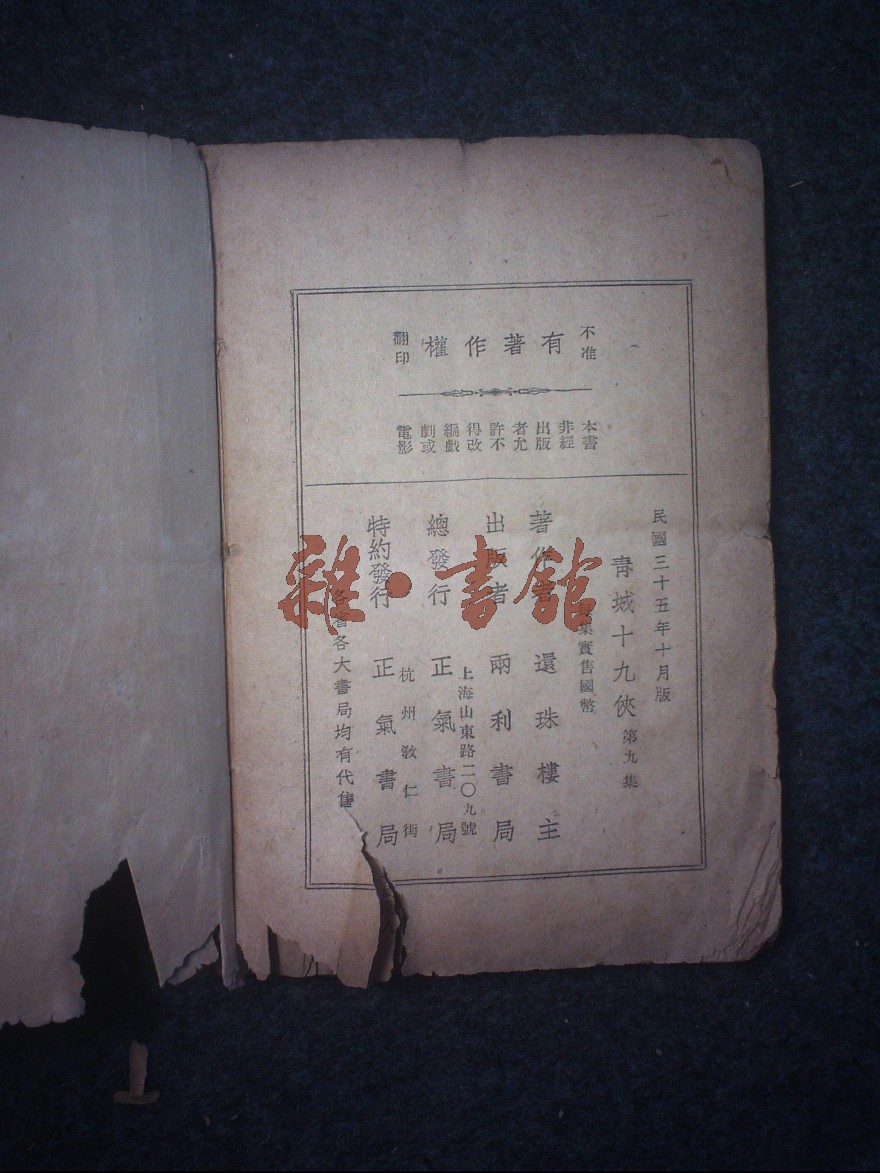 不准
有著作權
翻印
本書
非經
出版
者允
許不
得改
編戲
劇或
電影
民國三十五年十月版
青城十九俠 第九集
集實售國幣
著作者 還珠樓主
出版者 兩利書局
上海山東路二〇九號
總發行 正氣書局
杭州教仁街
特約發行 正氣書局
各省各大書局均有代售
雜·書館